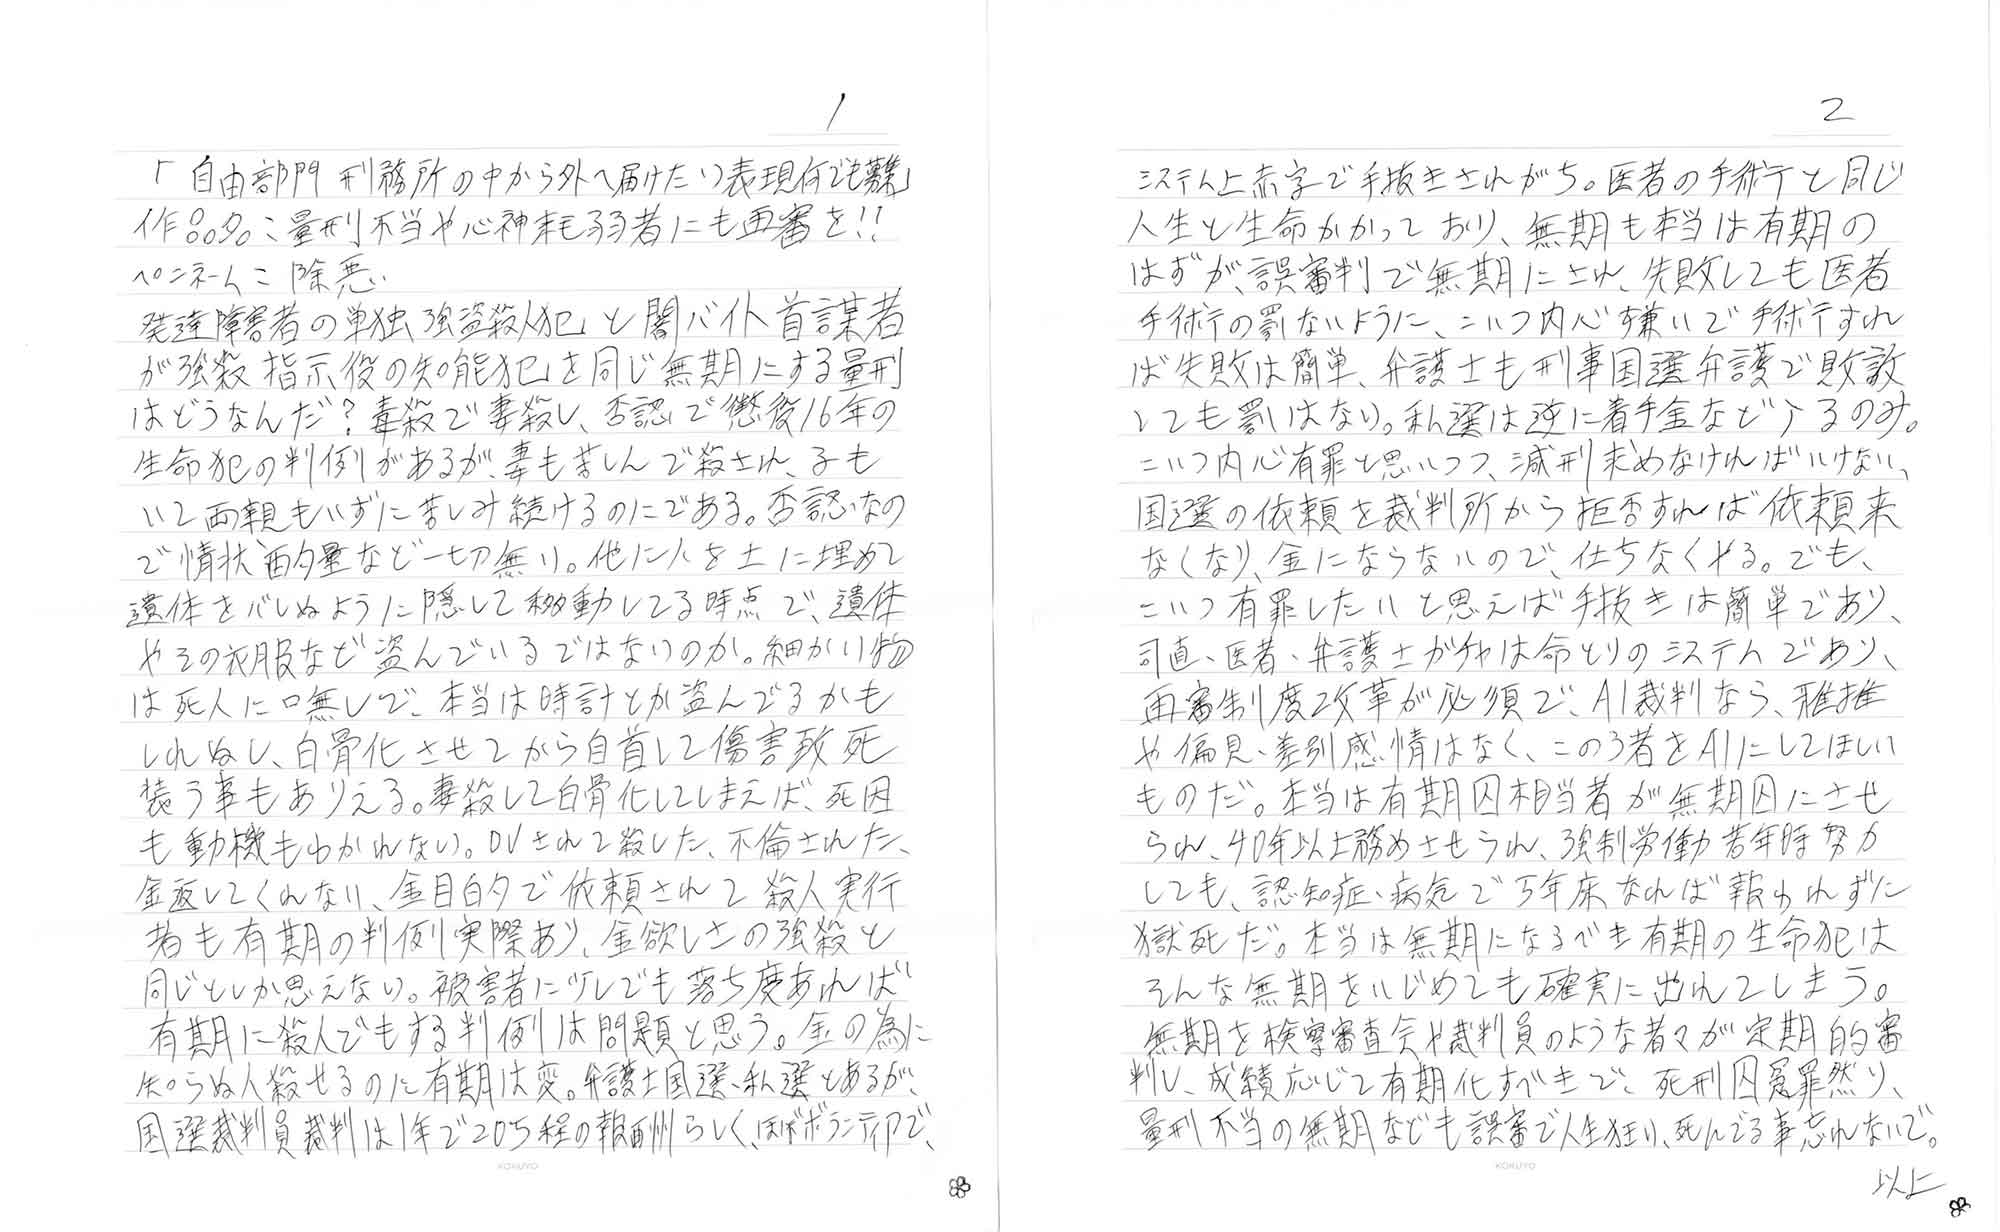 1
「自由部門 刑務所の中から外へ届けたい表現何でも募集」
作品名:量刑不当や心神耗弱者にも再審を!!
ペンネーム:除悪
発達障害者の単独強盗殺人犯」と闇バイト首謀者
が強殺指示役の知能犯」を同じ無期にする量刑
はどうなんだ?毒殺で妻殺し、否認で懲役16年の
生命犯の判例があるが、妻も苦しんで殺され、子も
いて両親もいずに苦しみ続けるのにである。否認なの
で情状酌量など一切無い。他に人を土に埋めて
遺体をバレぬように隠して移動してる時点で、遺体
やその衣服など盗んでいるではないのか。細かい物
は死人に口無しで、本当は時計とか盗んでるかも
しれぬし、白骨化させてから自首して傷害致死
装う事もありえる。妻殺して白骨化してしまえば、死因
も動機もわかれない。DVされて殺した、不倫された、
金返してくれない、金目的で依頼されて殺人実行
者も有期の判例実際あり、金欲しさの強殺と
同じとしか思えない。被害者に少しでも落ち度あれば
有期に殺人でもする判例は問題と思う。金の為に
知らぬ人殺せるのに有期は変。弁護士国選、私選とあるが、
国選裁判員裁判は1年で20万程の報酬らしく、ほぼボランティアで、
KOKUYO
2
システム上赤字で手抜きされがち。医者の手術と同じ
人生と生命かかっており、無期も本当は有期の
はずが、誤審判で無期にされ、失敗しても医者
手術の罰ないように、こいつ内心嫌いで手術すれ
ば失敗は簡単、弁護士も刑事国選弁護で敗訴
しても罰はない。私選は逆に着手金などうるのみ。
こいつ内心有罪と思いつつ、減刑求めなければいけない、
国選の依頼を裁判所から拒否すれば依頼来
なくなり、金にならないので、仕ちなくやる。でも、
こいつ有罪したいと思えば手抜きは簡単であり、
司直、医者、弁護士ガチャは命とりのシステムであり、
再審制度改革が必須で、AI裁判なら、邪推
や偏見、差別感情はなく、この3者をAIにしてほしい
ものだ。本当は有期囚相当者が無期囚にさせ
られ、40年以上務めさせられ、強制労働若年時努力
しても、認知症、病気で万年床なれば報われずに
獄死だ。本当は無期になるべき有期の生命犯は
そんな無期をいじめても確実に出れてしまう。
無期を検察審査会や裁判員のような者々が定期的審
判し、成績応じて有期化すべきで、死刑囚冤罪然り、
量刑不当の無期なども誤審で人生狂い、死んでる事忘れないで。
以上
KOKUYO